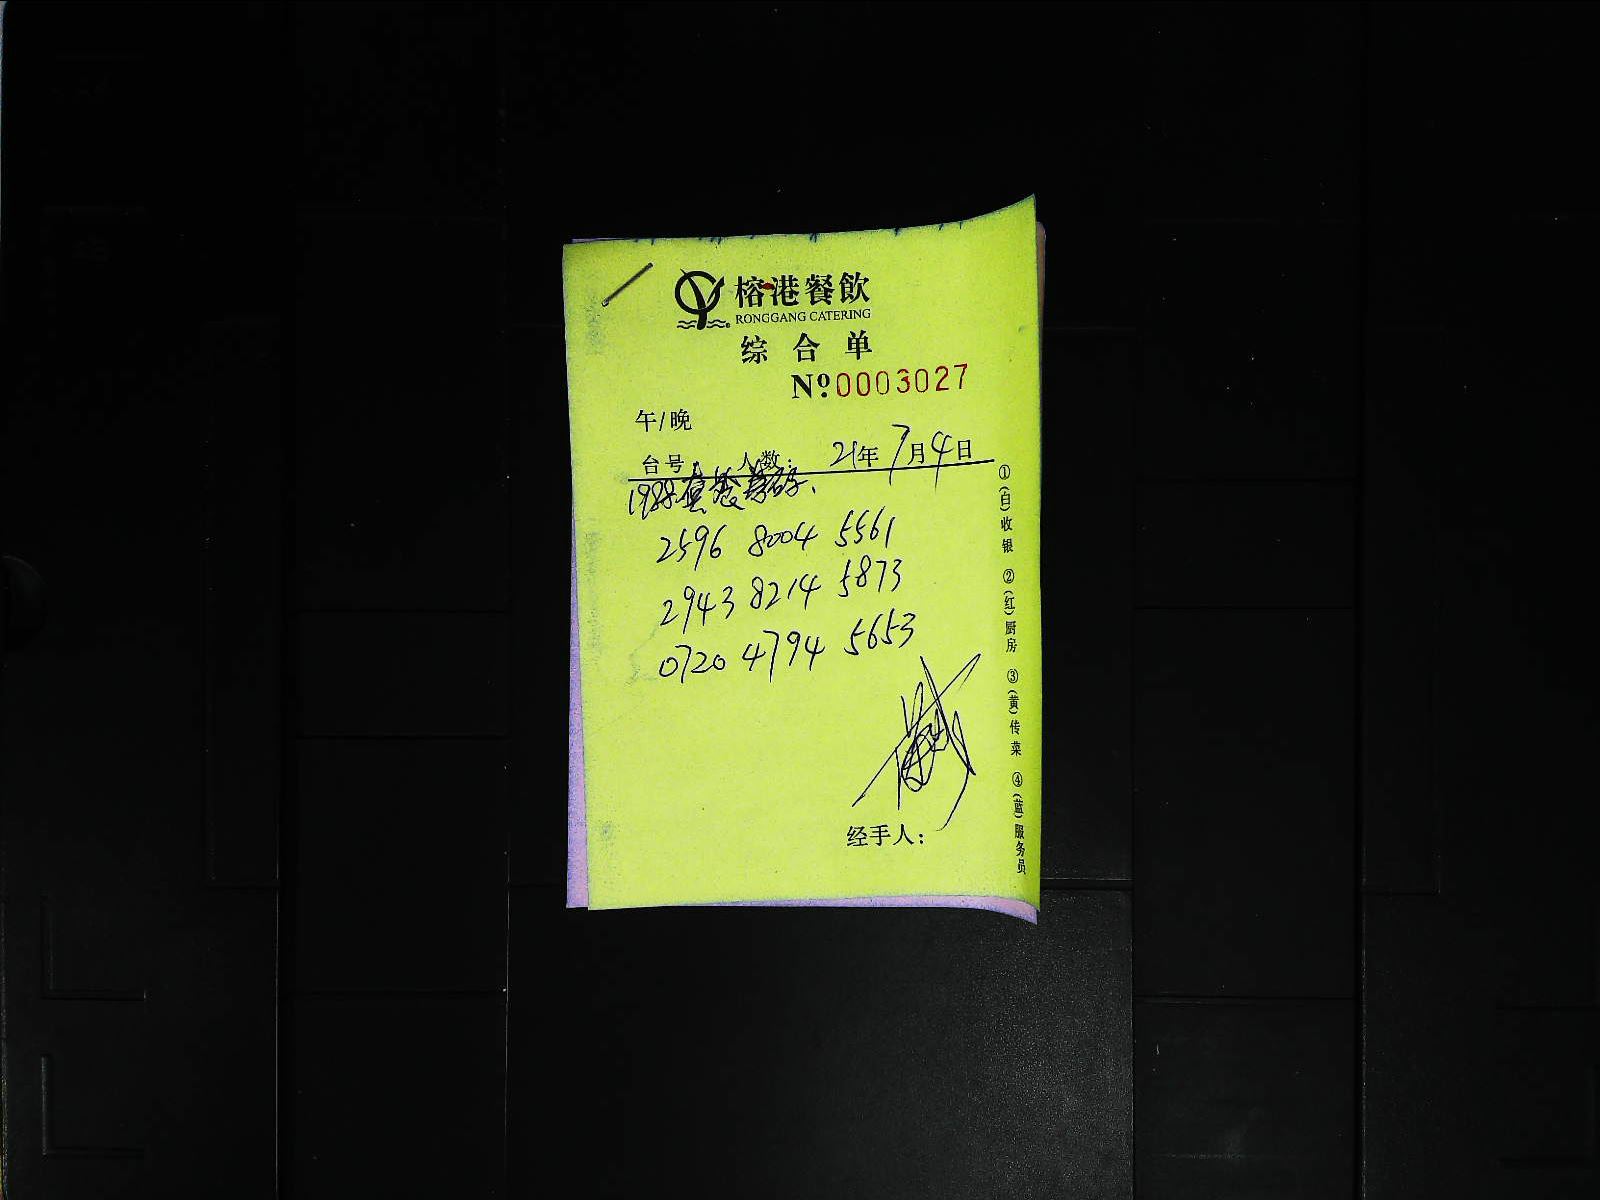 榕港餐飲
RONGGANG CATERING
综合单
Nº 0003027
午/晚
台号 人数: 21年7月4日
1988套餐券码、
2596 8004 5561
2943 8214 5873
0720 4794 5653
经手人:
①(白)收银 ②(红)厨房 ③(黄)传菜 ④(蓝)服务员